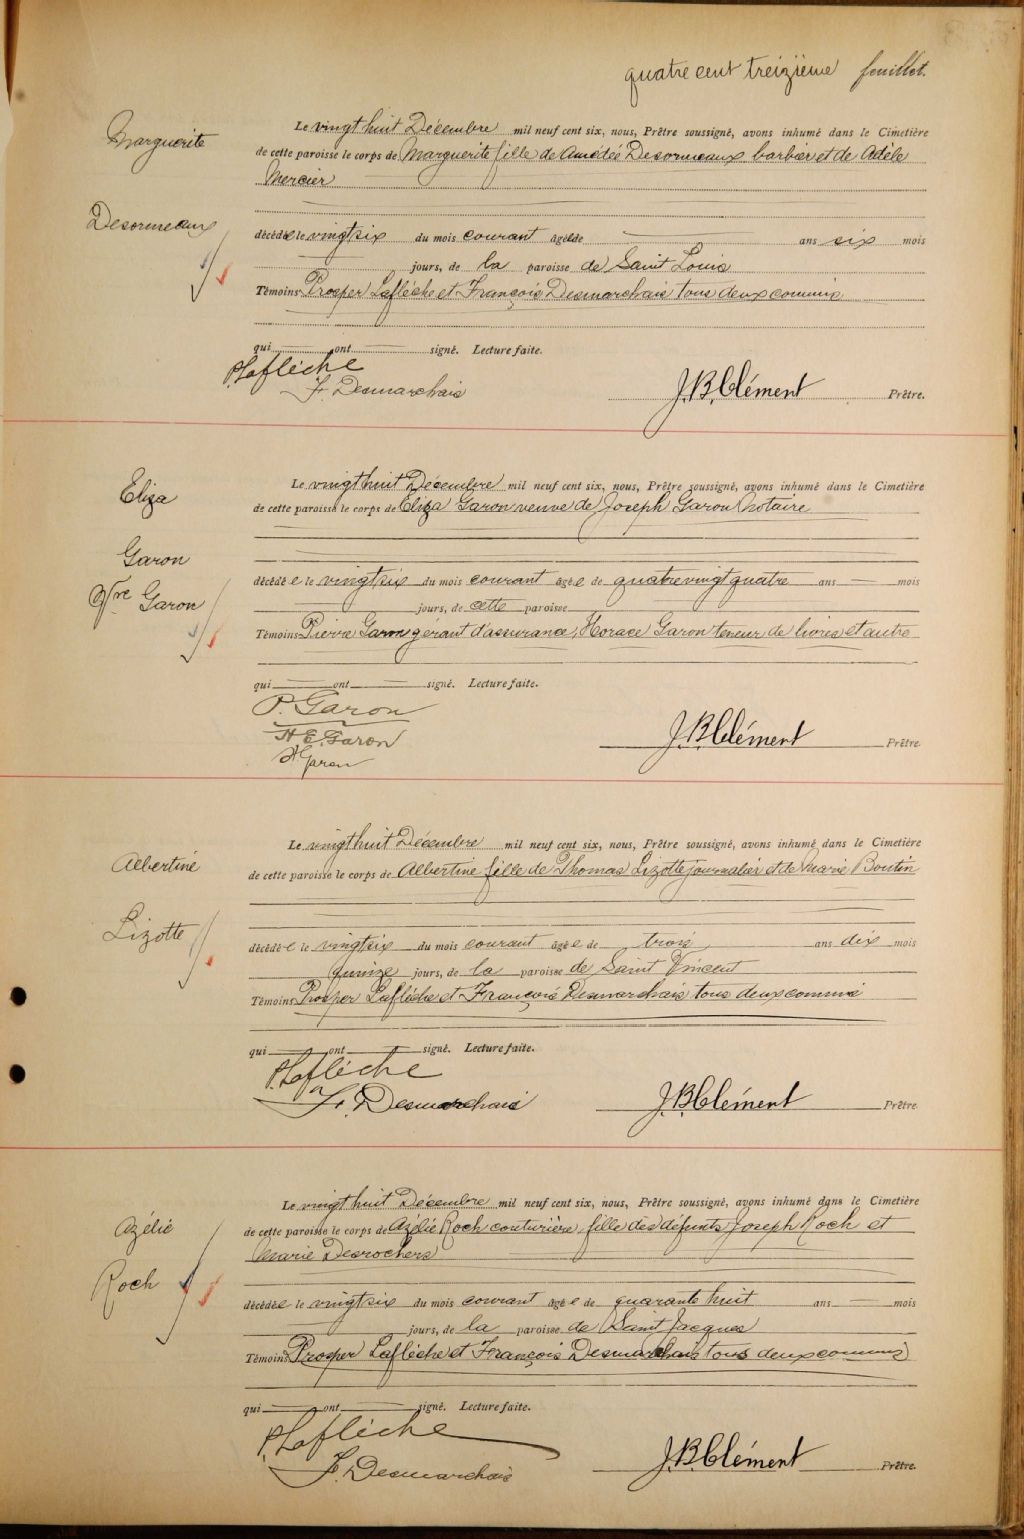 quatre cent treizième feuillet.
Marguerite
Desormeaux
Le vingt huit Décembre mil neuf cent six, nous, Prêtre soussigné, avons inhumé dans le Cimetière
de cette paroisse le corps de Marguerite fille de Amédée Desormeaux barbier et de Adèle
Mercier
décédée le vingt six du mois courant âgée de ans six mois
jours, de la paroisse de Saint Louis
Témoins Prosper Laflèche et François Desmarchais tous deux commis
qui ont signé. Lecture faite.
P. Laflèche
F. Desmarchais
J.B. Clément Prêtre.
Eliza
Garon
Vve Garon
Le vingt huit Décembre mil neuf cent six, nous, Prêtre soussigné, avons inhumé dans le Cimetière
de cette paroisse le corps de Eliza Garon veuve de Joseph Garon Notaire
décédée le vingt six du mois courant âgée de quatre vingt quatre ans mois
jours, de cette paroisse
Témoins Pierre Garon gérant d'assurance, Horace Garon teneur de livres et autre
qui ont signé. Lecture faite.
P. Garon
H E. Garon
H Garon
J.B. Clément Prêtre
Albertine
Lizotte
Le vingt huit Décembre mil neuf cent six, nous, Prêtre soussigné, avons inhumé dans le Cimetière
de cette paroisse le corps de Albertine fille de Thomas Lizotte journalier et de Marie Boutin
décédée le vingt six du mois courant âgée de trois ans dix mois
quinze jours, de la paroisse de Saint Vincent
Témoins Prosper Laflèche et François Desmarchais tous deux commis
qui ont signé. Lecture faite.
P. Laflèche
F. Desmarchais
J.B. Clément Prêtre
Azélie
Roch
Le vingt huit Décembre mil neuf cent six, nous, Prêtre soussigné, avons inhumé dans le Cimetière
de cette paroisse le corps de Azélie Roch couturière, fille des défunts Joseph Roch et
Marie Desrochers
décédée le vingt six du mois courant âgée de quarante huit ans mois
jours, de la paroisse de Saint Jacques
Témoins Prosper Laflèche et François Desmarchais tous deux commis
qui ont signé. Lecture faite.
P. Laflèche
F. Desmarchais
J.B. Clément Prêtre.